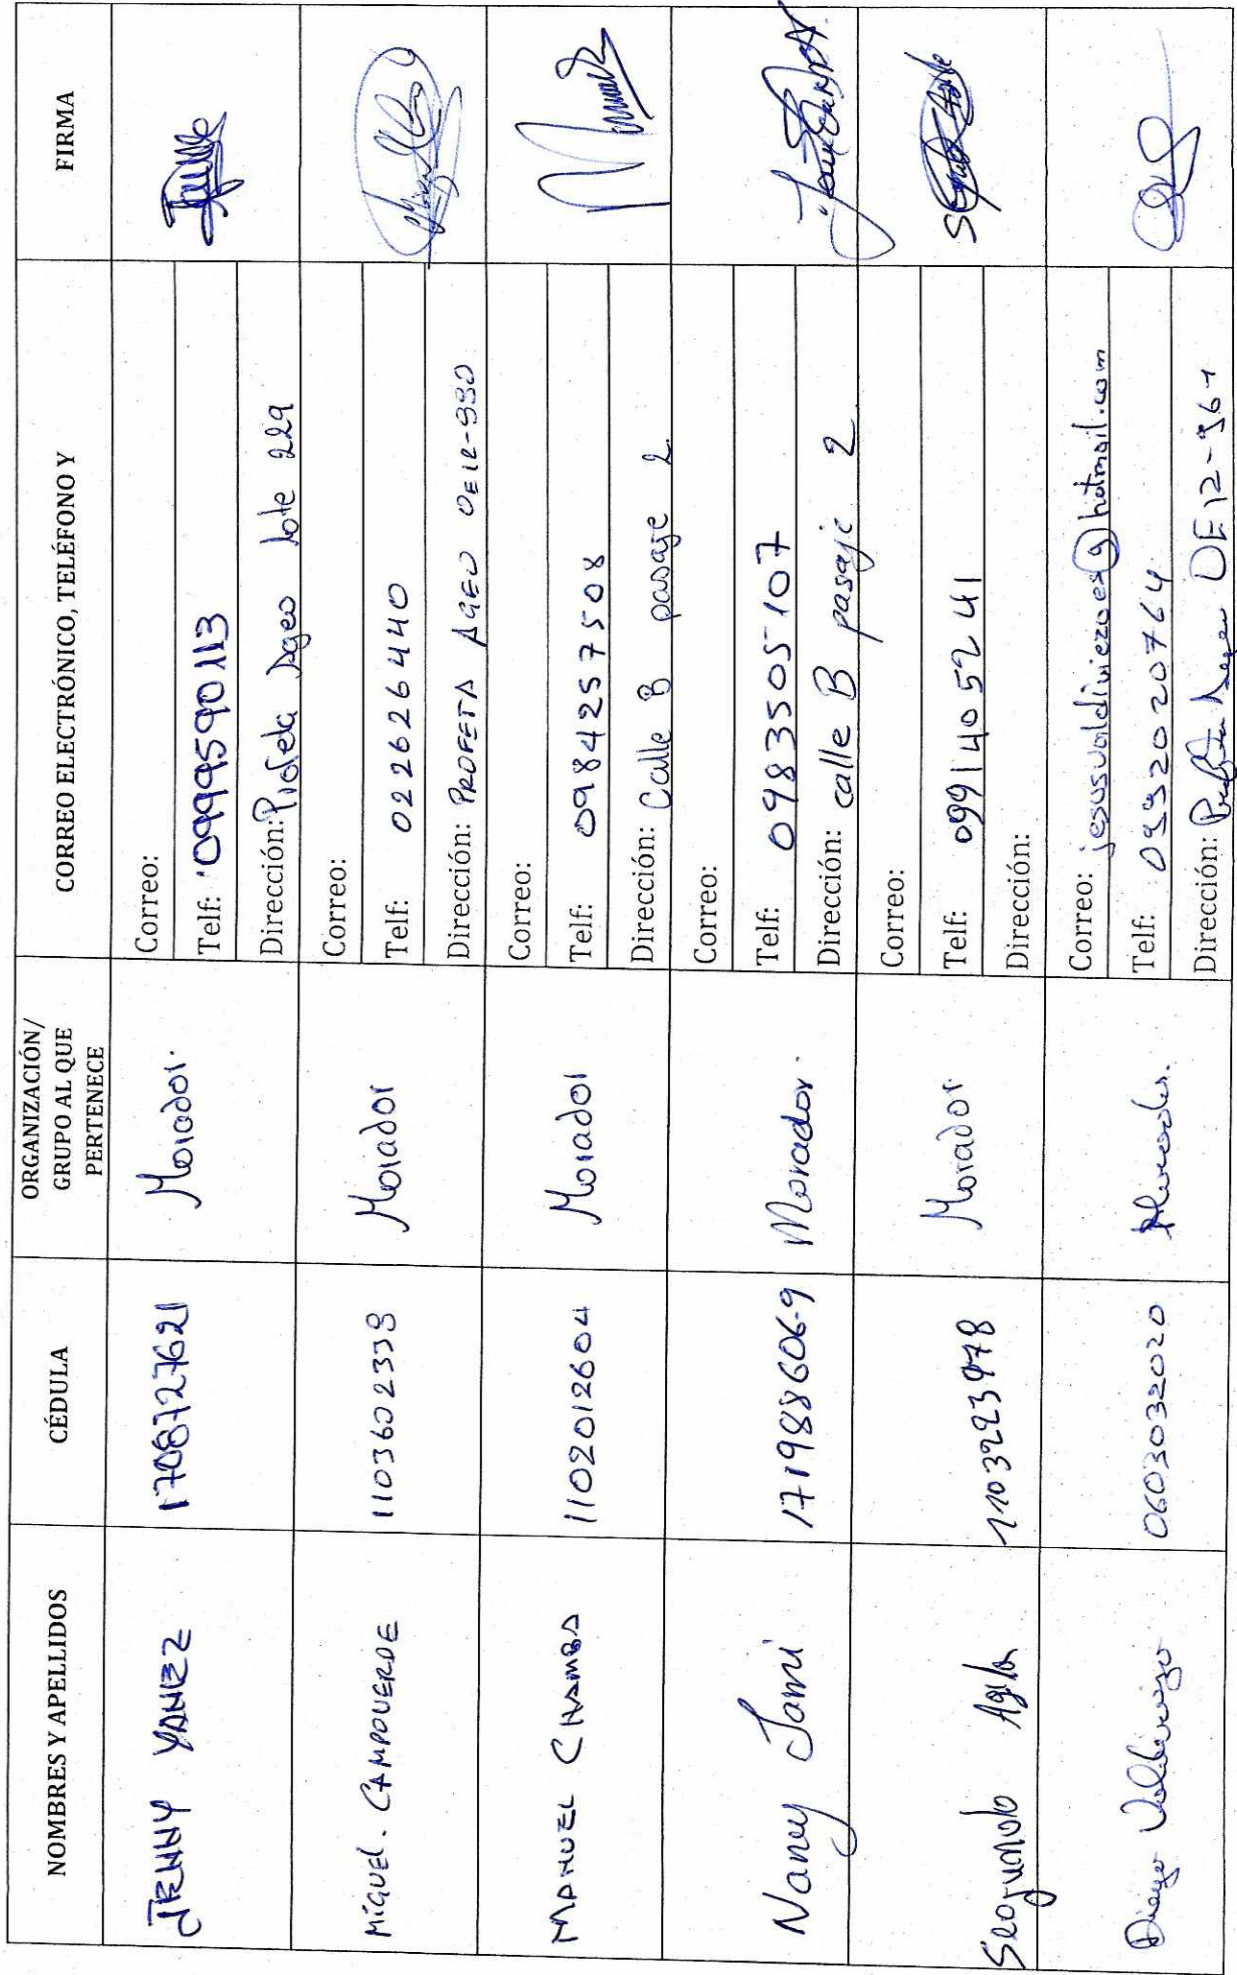 NOMBRES Y APELLIDOS CÉDULA ORGANIZACIÓN/ GRUPO AL QUE PERTENECE CORREO ELECTRÓNICO, TELÉFONO Y FIRMA
JENNY YANEZ 1708727621 Morador.
Correo:
Telf: 0999590113
Dirección: Profeta Ageo lote 229
MIGUEL. CAMPOVERDE 1103602339 Morador
Correo:
Telf: 022626440
Dirección: PROFETA AGEO OE12-330
MANUEL CHAMBA 1102012604 Morador
Correo:
Telf: 0984257508
Dirección: Calle B pasaje 2
Nancy Jami 171988606-9 Morador.
Correo:
Telf: 0983505107
Dirección: calle B pasaje 2
Segundo Agila 1103223978 Morador.
Correo:
Telf: 0991405241
Dirección:
Diego Valdiviezo 0603032020 Morador.
Correo: jesusvaldiviezoex@hotmail.com
Telf: 0932020764
Dirección: Profeta Ageo OE12-361